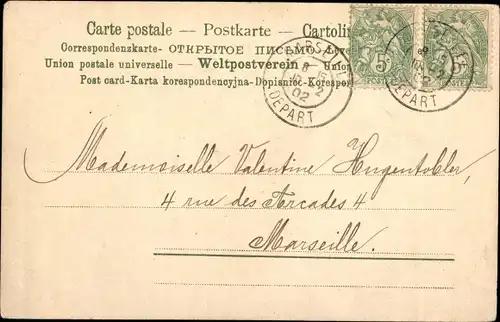 Carte postale — Postkarte — Cartolin
Correspondenzkarte - ОТКРЫТОЕ ПИСЬМО - Leve
Union postale universelle — Weltpostverein — Union
Post card-Karta korespondencyjna-Dopisnice-Korespon
DEPART
02
5
DEPART
02
5
POSTE
Mademoiselle Valentine Hugentobler,
4 rue des Arcades 4
Marseille.